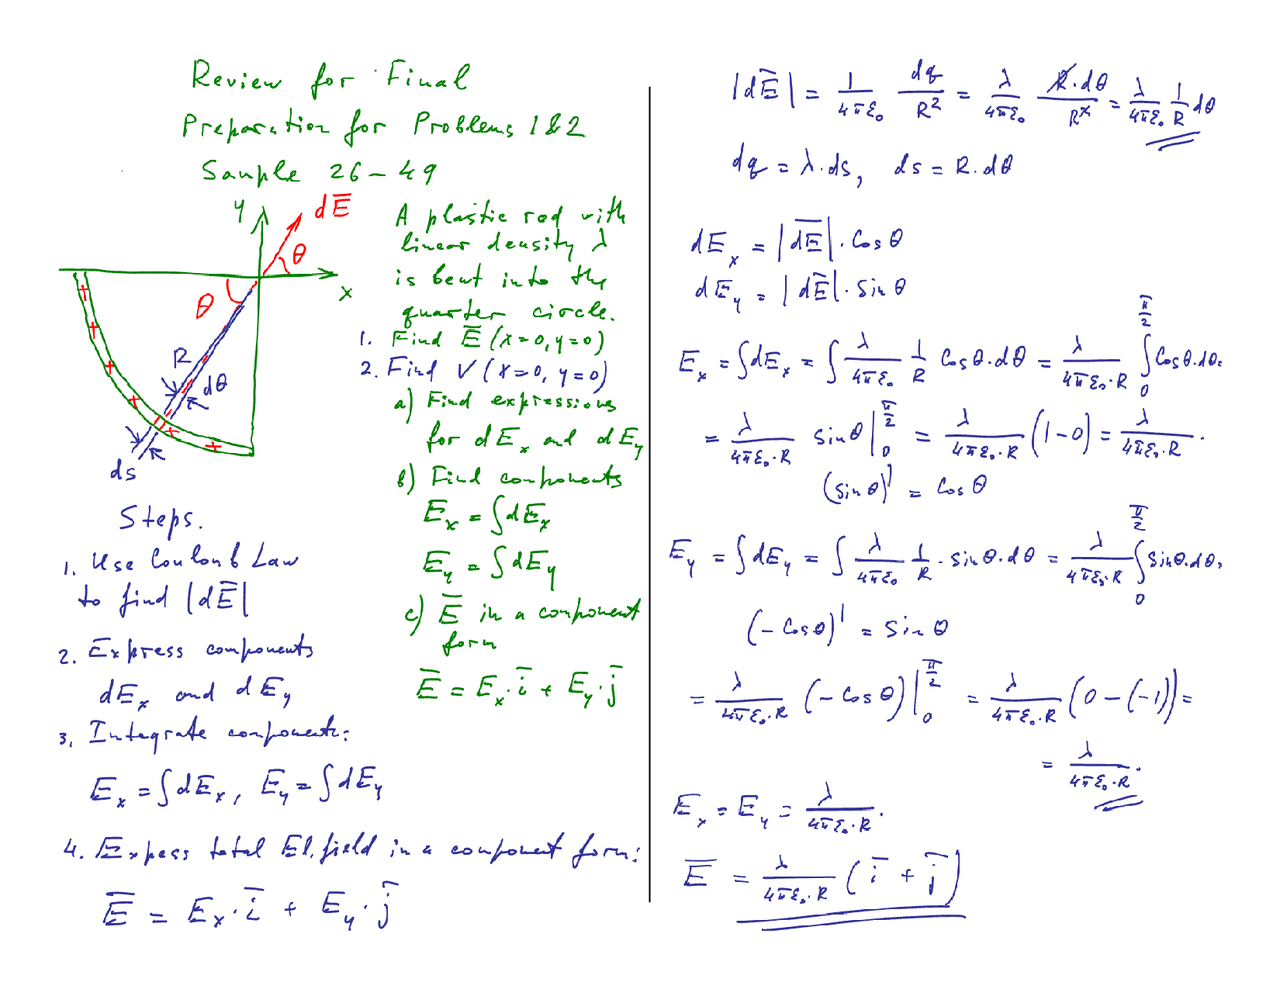 Review for Final
Preparation for Problems 1&2
Sample 26-49
y
dE̅
θ
x
θ
R
dθ
ds
A plastic rod with
linear density λ
is bent into the
quarter circle.
1. Find E̅ (x=0, y=0)
2. Find V (x=0, y=0)
a) Find expressions
for dEx and dEy
b) Find components
Ex = ∫dEx
Ey = ∫dEy
c) E̅ in a component
form
E̅ = Ex·i̅ + Ey·j̅
Steps.
1. Use Coulomb Law
to find |dE̅|
2. Express components
dEx and dEy
3. Integrate components:
Ex = ∫dEx, Ey = ∫dEy
4. Express total El. field in a component form:
E̅ = Ex·i̅ + Ey·j̅
|dE̅| = 1/4πε₀ dq/R² = λ/4πε₀ R·dθ/R² = λ/4πε₀ 1/R dθ
dq = λ·ds, ds = R·dθ
dEx = |dE̅|·cosθ
dEy = |dE̅|·sinθ
Ex = ∫dEx = ∫ λ/4πε₀ 1/R cosθ·dθ = λ/4πε₀·R ∫₀^(π/2) cosθ·dθ=
= λ/4πε₀·R sinθ|₀^(π/2) = λ/4πε₀·R (1-0) = λ/4πε₀·R.
(sinθ)' = cosθ
Ey = ∫dEy = ∫ λ/4πε₀ 1/R·sinθ·dθ = λ/4πε₀·R ∫₀^(π/2) sinθ·dθ=
(-cosθ)' = sinθ
= λ/4πε₀·R (-cosθ)|₀^(π/2) = λ/4πε₀·R (0-(-1)) =
= λ/4πε₀·R.
Ex = Ey = λ/4πε₀·R.
E̅ = λ/4πε₀·R (i̅ + j̅)